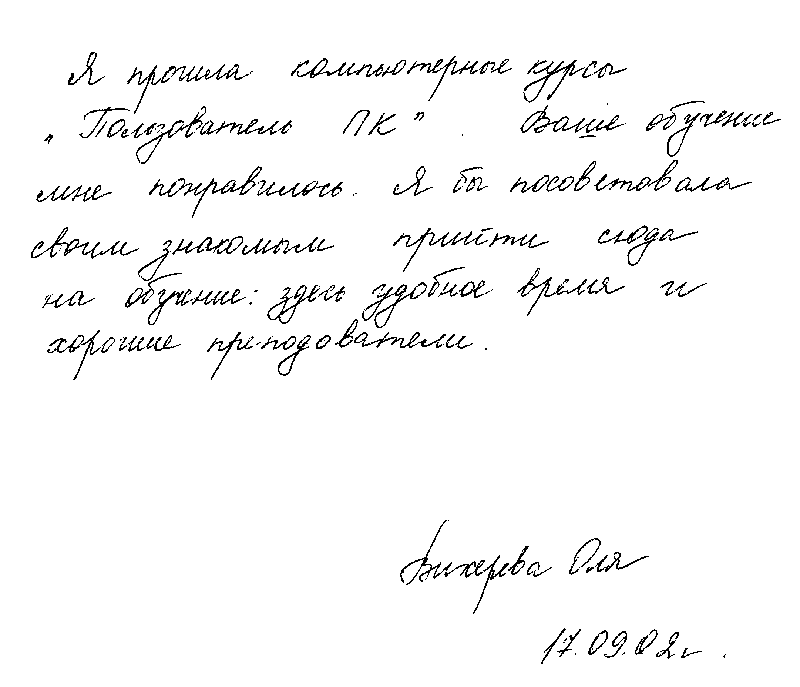 Я прошла компьютерные курсы
„Пользователь ПК". Ваше обучение
мне понравилось. Я бы посоветовала
своим знакомым прийти сюда
на обучение: здесь удобное время и
хорошие преподователи.
Оля
17.09.02г.